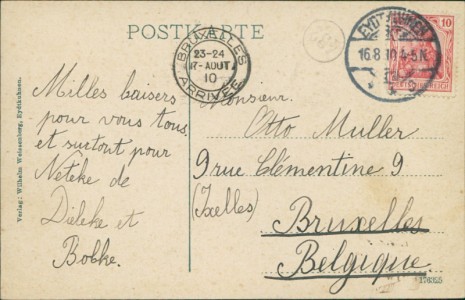 POSTKARTE
BRUXELLES
23-24
AOUT
10
ARRIVÉE
EYDTKUHNEN
16.8.10.4-5N.
10
Milles baisers
pour vous tous
et surtout pour
Neteke de
Dideke et
Bobke.
Monsieur.
Otto Muller
9 rue Clémentine 9
(Ixelles)
Bruxelles
Belgique.
Verlag: Wilhelm Weissenberg, Eydtkuhnen.